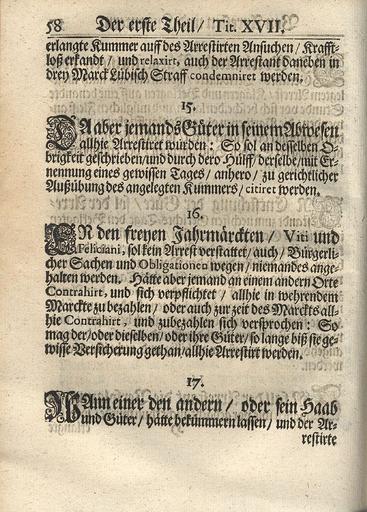 58 Der erste Theil / Tit. XVII.
erlangte Kummer auff des Arrestirten Ansuchen / Krafft-
loß erkandt / und relaxirt, auch der Arrestant daneben in
drey Marck Lübisch Straff condemniret werden.
15.
DA aber jemands Güter in seinem Abwesen
allhie Arrestiret würden: So sol an desselben O-
brigkeit geschrieben / und durch dero Hülff / derselbe / mit Er-
nennung eines gewissen Tages / anhero / zu gerichtlicher
Außübung des angelegten Kummers / citiret werden.
16.
IN den freyen Jahrmärckten / Viti und
Feliciani, sol kein Arrest verstattet / auch / Bürgerli-
cher Sachen und Obligationen wegen / niemandes ange-
halten werden. Hätte aber jemand an einem andern Orte
Contrahirt, und sich verpflichtet / allhie in wehrendem
Marckte zu bezahlen / oder auch zur zeit des Marckts all-
hie Contrahirt, und zubezahlen sich versprochen: So
mag der / oder dieselben / oder ihre Güter / so lange biß sie ge-
wisse Versicherung gethan / allhie Arrestirt werden.
17.
WAnn einer den andern / oder sein Haab
und Güter / hätte bekümmern lassen / und der Ar-
restirte